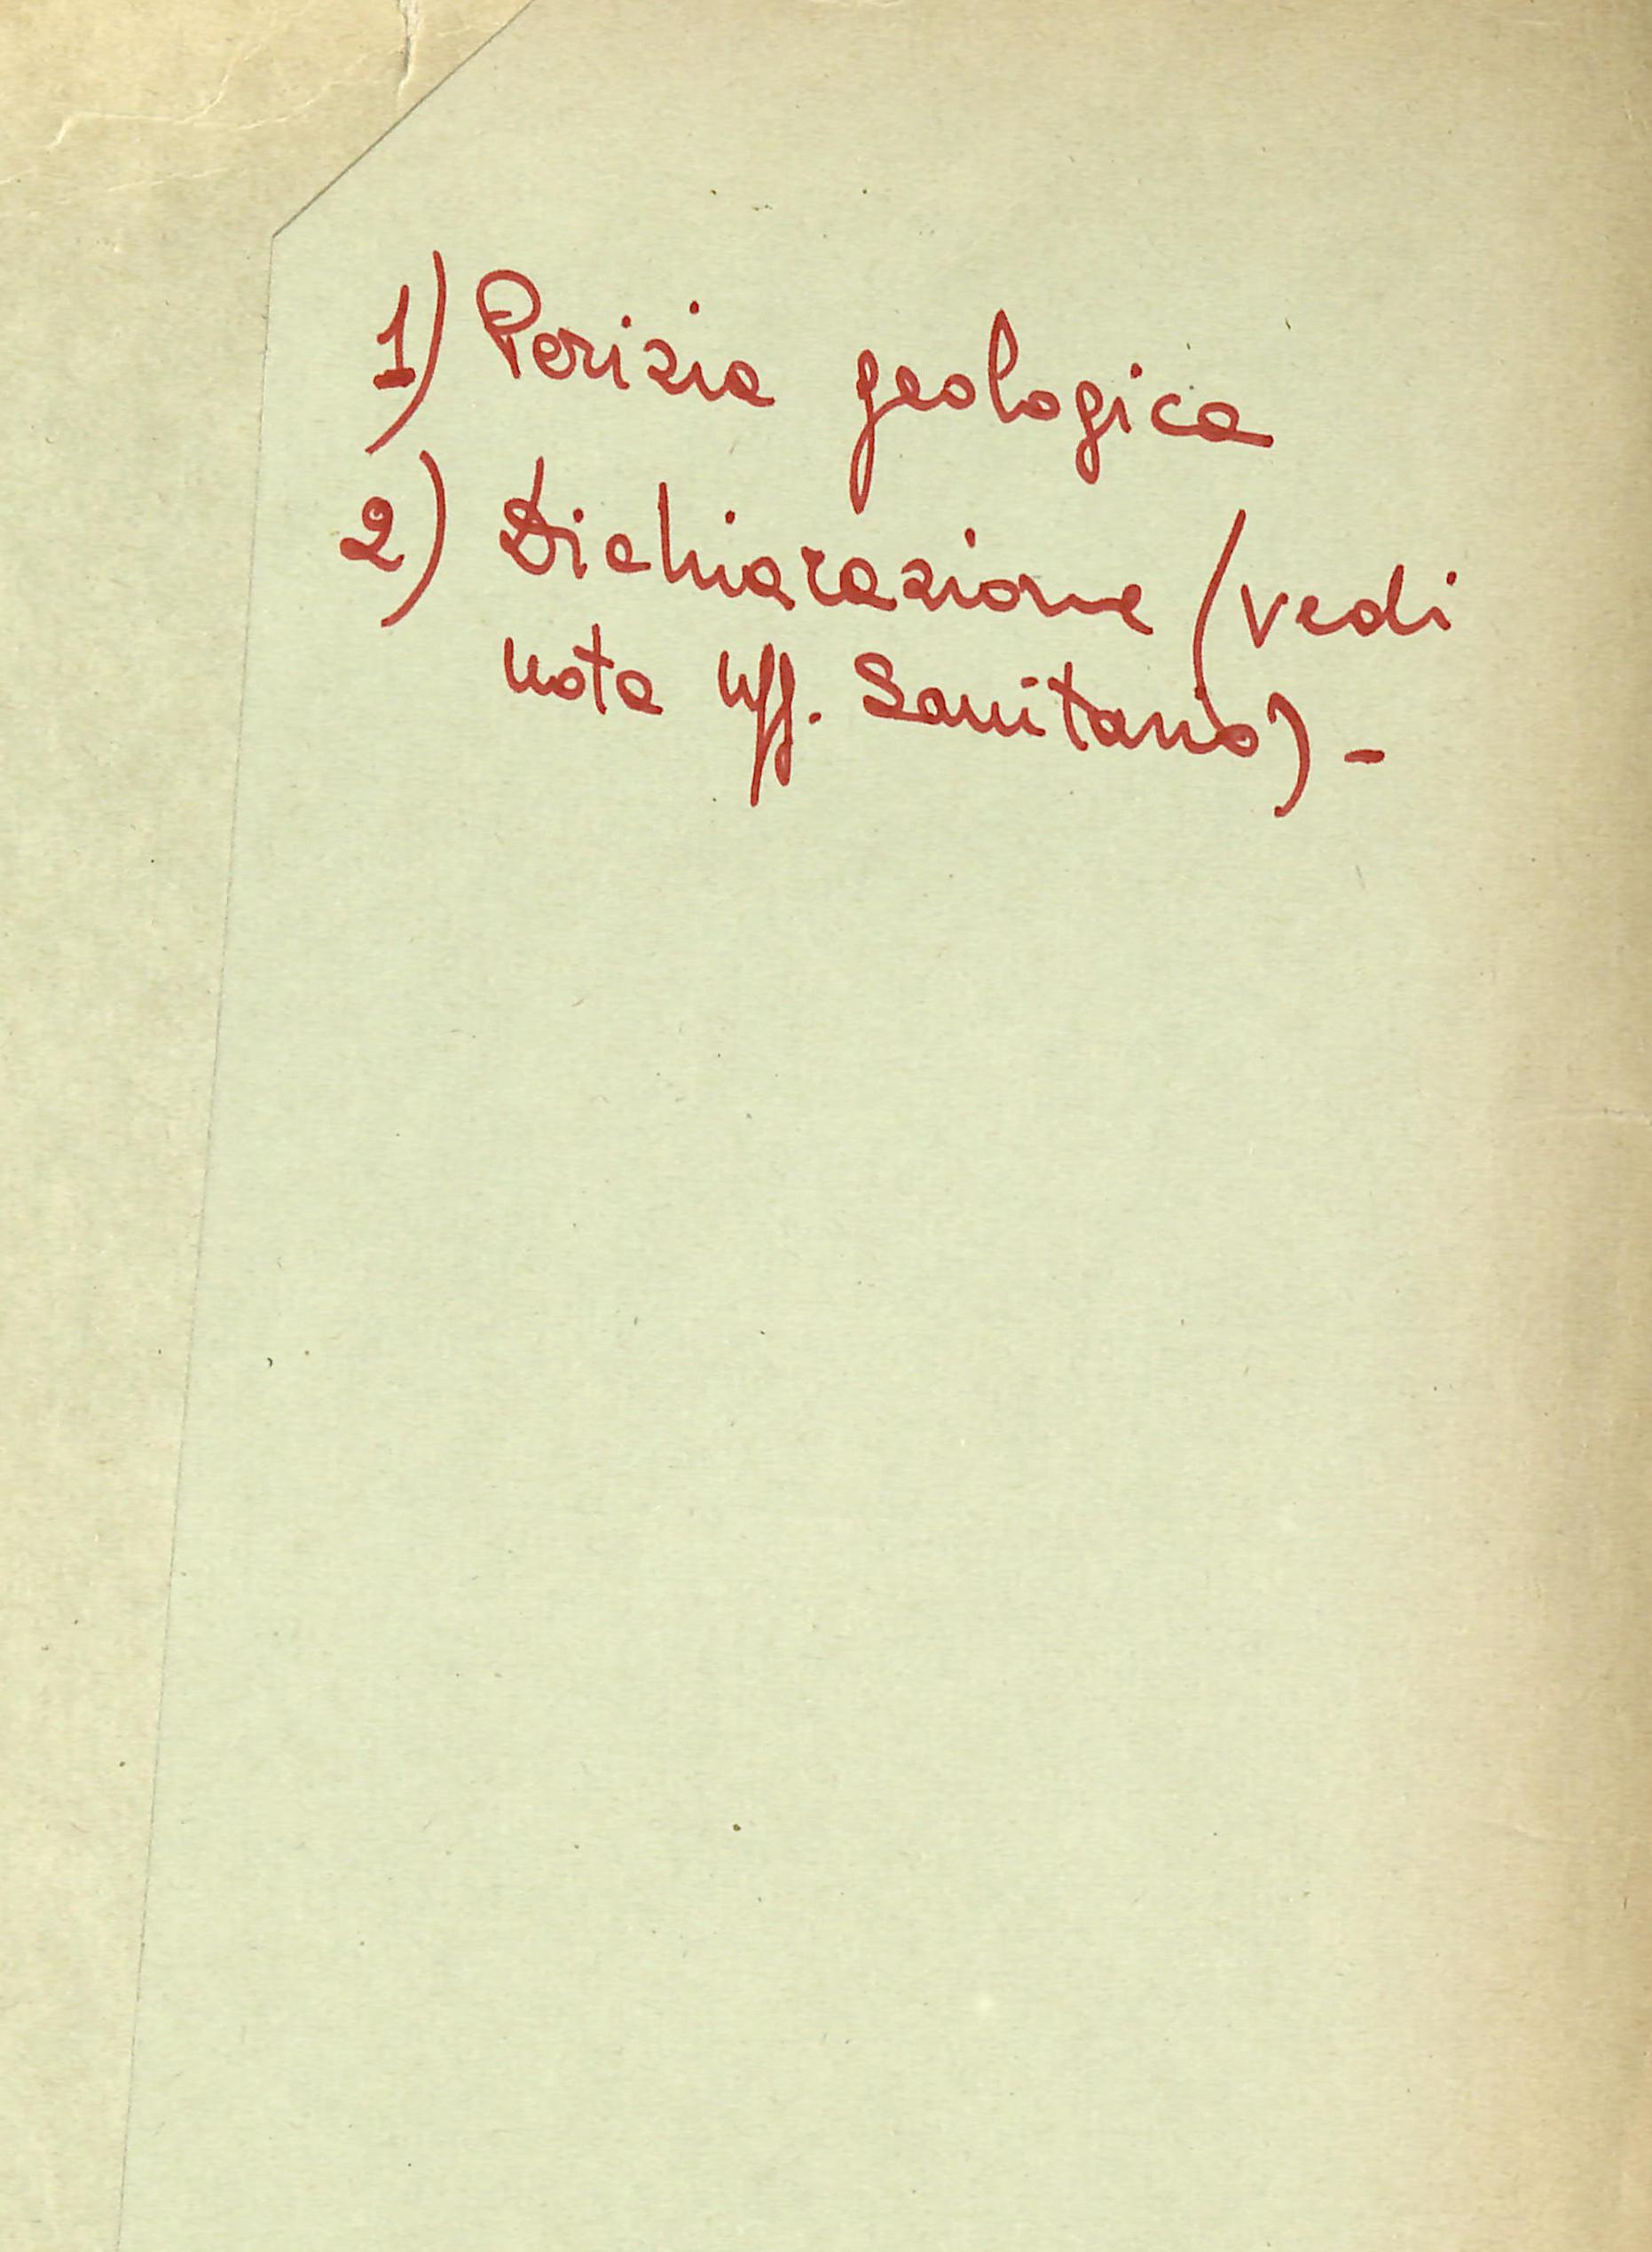 1) Perizia geologica
2) Dichiarazione (vedi
nota Uff. Sanitario) -